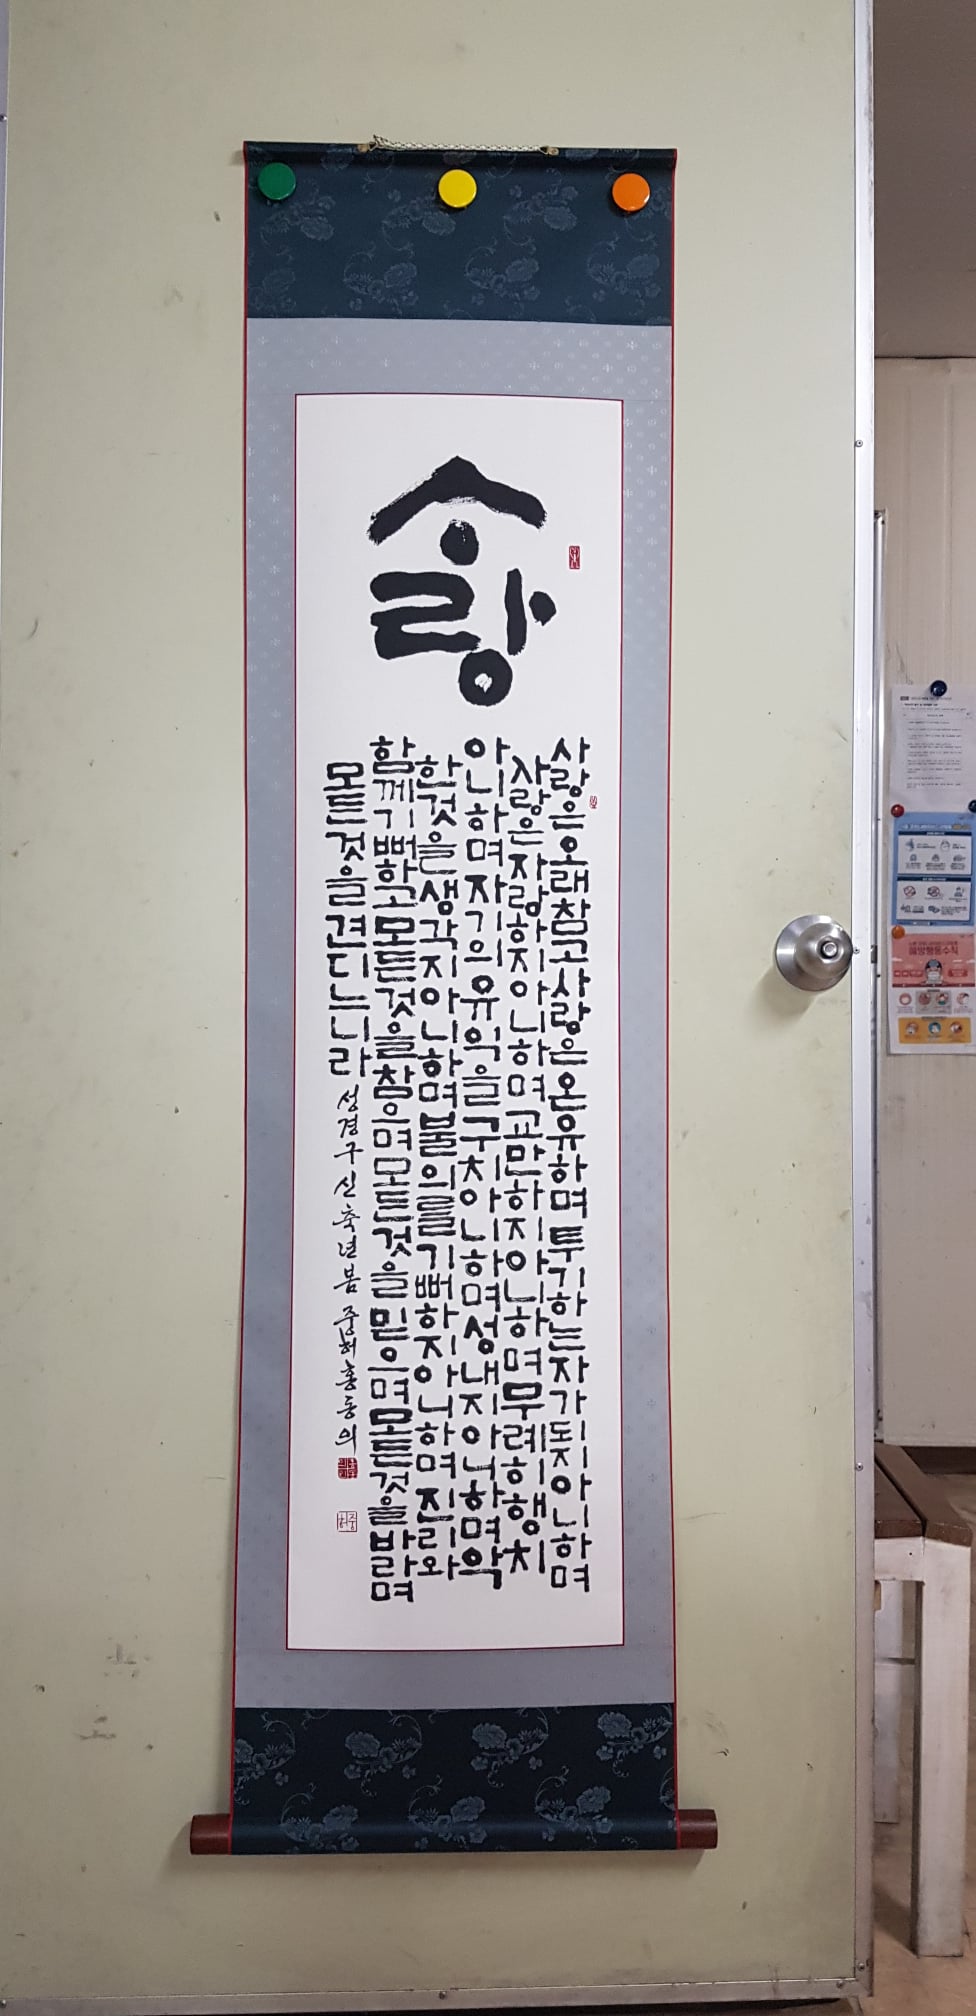 ᄉᆞ랑
사랑은오래참고사랑은온유하며투기하는자가되지아니하며
사랑은자랑하지아니하며교만하지아니하며무례히행치
아니하며자기의유익을구치아니하며성내지아니하며악
한것을생각지아니하며불의를기뻐하지아니하며진리와
함께기뻐하고모든것을참으며모든것을믿으며모든것을바라며
모든것을견디느니라 성경구 신축년 봄 중허 홍동의
중허
예방행동수칙